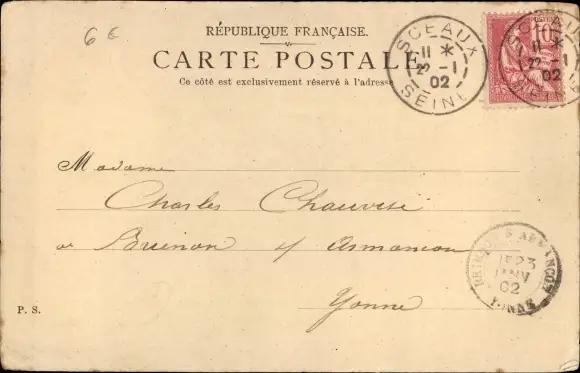 6 €
RÉPUBLIQUE FRANÇAISE.
CARTE POSTALE
Ce côté est exclusivement réservé à l'adresse
SCEAUX
11 *
22 -1
02
SEINE
10
SCEAUX
11 *
22 -1
02
SEINE
Madame
Charles Chauvisé
à Brienon s/ Armançon
Yonne
BRIENON S ARMANÇON
23
JANV
02
YONNE
P. S.